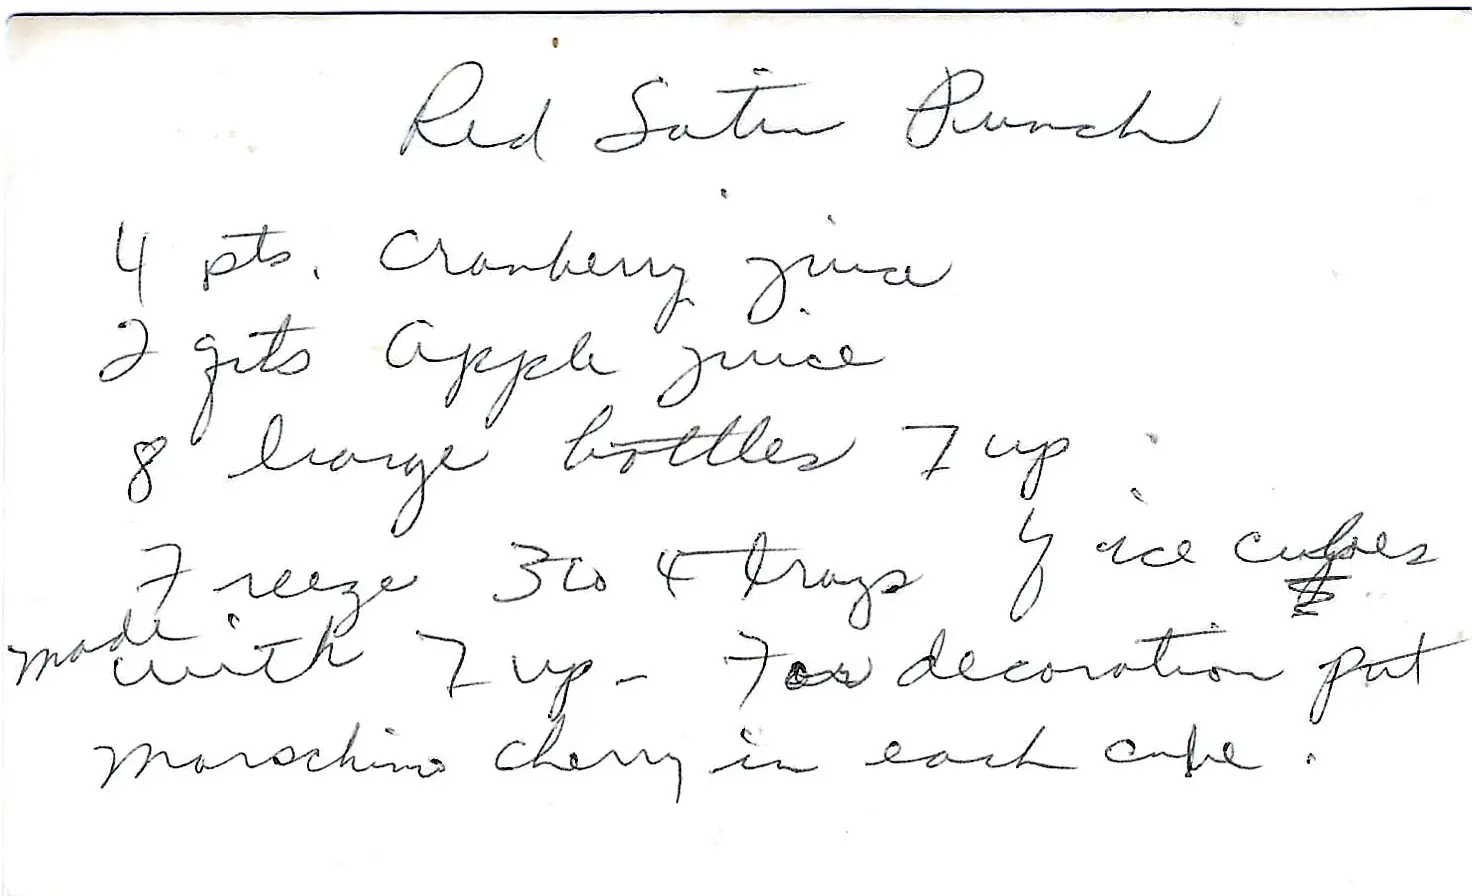 Red Satin Punch
4 pts. Cranberry juice
2 qts Apple juice
8 large bottles 7 up
Freeze 3 to 4 trays of ice cubes
made with 7 up - For decoration put
Marschino cherry in each cube.